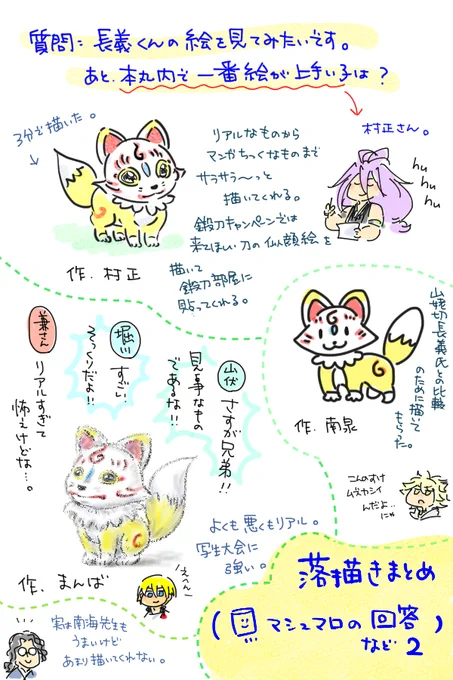 質問: 長義くんの絵を見てみたいです。
あと、本丸内で一番絵が上手い子は？
3分で描いた。
村正さん。
リアルなものから
マンガちっくなものまで
サラサラ〜っと
描いてくれる。
鍛刀キャンペーンでは
来てほしい刀の似顔絵を
描いて
鍛刀部屋に
貼ってくれる。
hu
hu
hu
作. 村正
山姥切長義氏との比較
のために描いて
もらった。
作. 南泉
こんのすけ
ムズカシイ
んだよ…
にゃ
山伏
さすが兄弟!!
見事なもの
であるな!!
堀川
すごい
そっくりだよ!!
兼さん
リアルすぎて
怖えけどな…。
作. まんば
よくも悪くもリアル。
写生大会に
強い。
えへん
実は南海先生も
うまいけど
あまり描いてくれない。
落描きまとめ
( マシュマロの回答
など 2 )